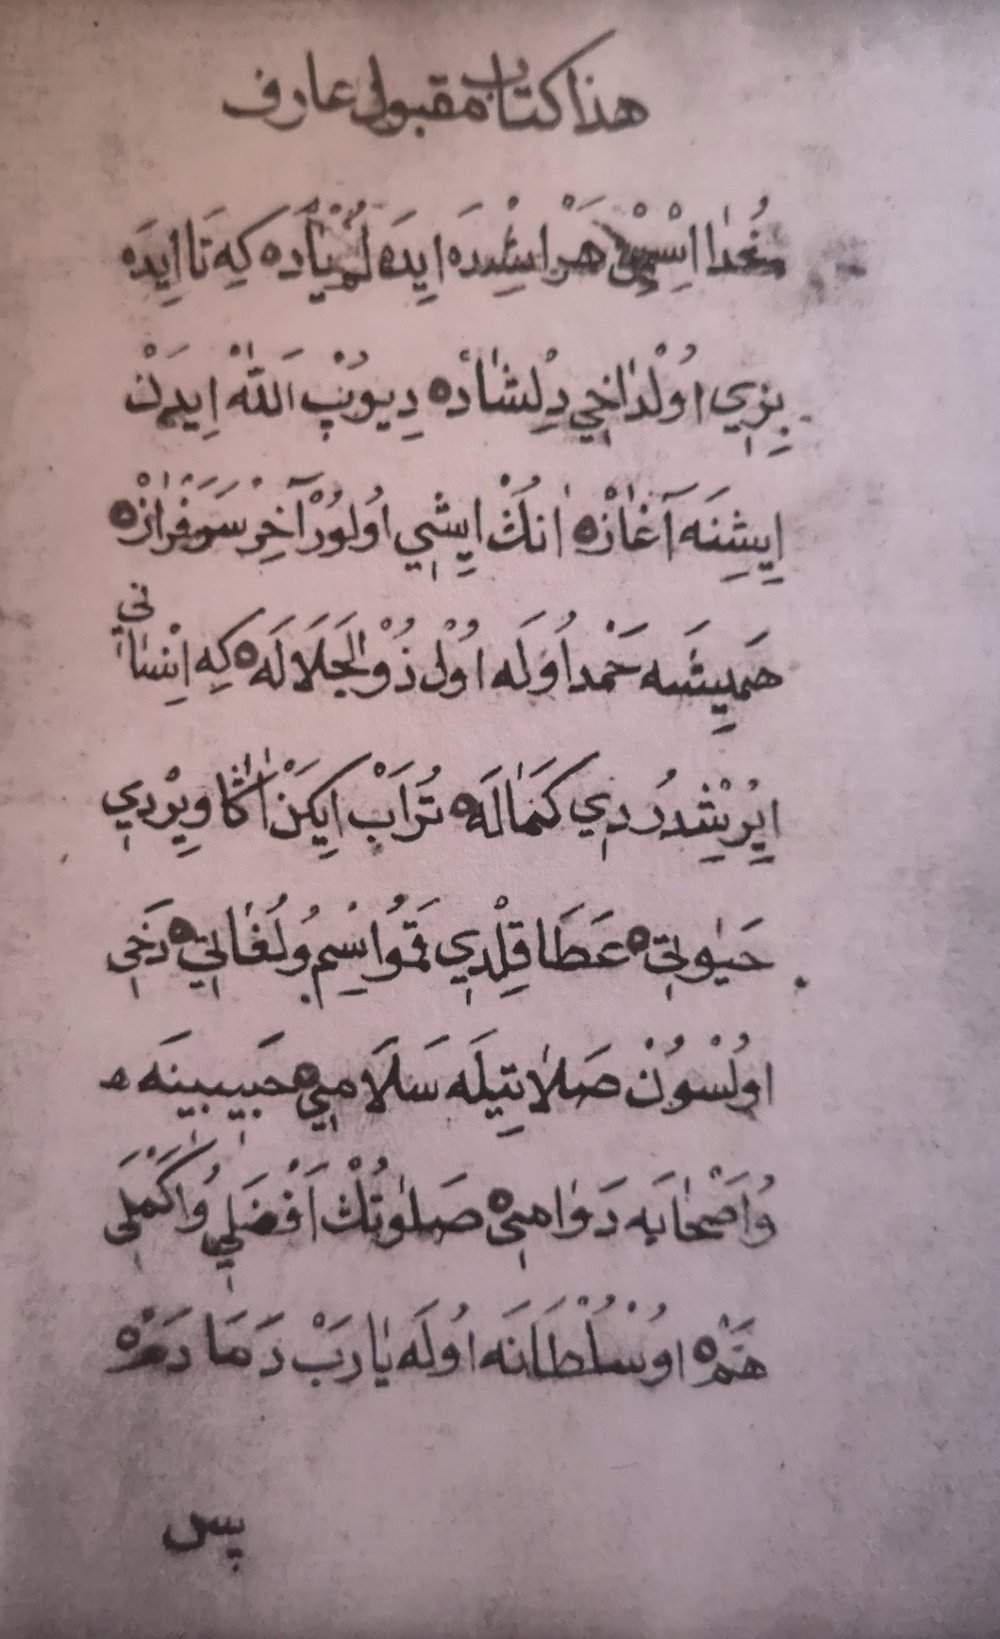 هذا كتاب مقبول عارف
خُدٰا اِسْمِنْ هَرْ اِشْدَه اِيدَه لُمْ يٰادَه كِه تَا اِيدَه
بِزِي اوُلْدٰاخِي دِلْشٰادَه دِيوُبْ اَللّٰهْ اِيدَنْ
اِيشِنَه آغٰازْه اٰنُكْ اِيشِي اوُلوُرْ آخِرْ سَرَفْرٰازْه
هَمِيشَه حَمْد اوُلَه اوُلْ ذُوْالْجَلَالَه كِه اِنْسٰانِي
اِيرِيشْدُردِي كَمٰالَه تُرَابْ اِيكَنْ اٰكَا وِيرْدِي
حَيٰوتِي عَطَا قِلْدِي قَمُو اِسْمِ وُ لُغٰاتِي دَخِي
اوُلْسوُنْ صَلٰاتِيلَه سَلَامِي حَبِيبِينَه
وُ اَصْحٰابَه دَوٰامِي صَلٰوتُكْ اَفْضَلِي وُ اَكْمَلِي
هَمْ اوُ سُلْطَانَه اوُلَه يٰا رَبْ دَمَا دَمْ
پس